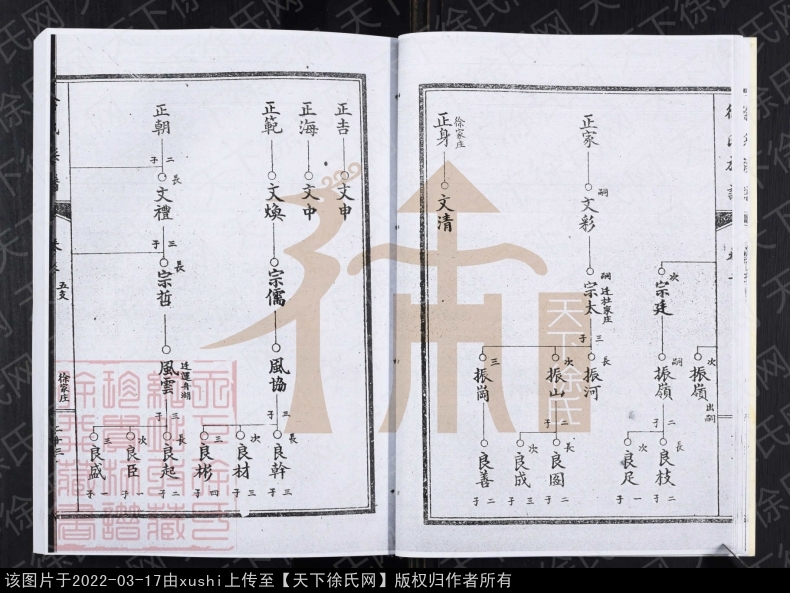 宗廷
次
振嶺
嗣
次
振嶺
出嗣
良枝
長
二子
良足
次
一子
正家
文彩
嗣
宗太
嗣
迁杜家庄
三子
振河
長
振山
次
二子
振崗
三
良图
長
二子
良成
次
三子
良善
二子
徐家庄
正身
文清
正吉
文申
正海
文中
正範
文煥
宗儒
風協
三子
良幹
長
三子
良材
次
三子
良彬
三
四子
正朝
二子
文禮
長
三子
宗哲
長
風雲
三子
良起
長
二子
良臣
次
一子
良盛
三
一子
五支
徐家庄
天下徐氏
该图片于2022-03-17由xushi上传至【天下徐氏网】版权归作者所有